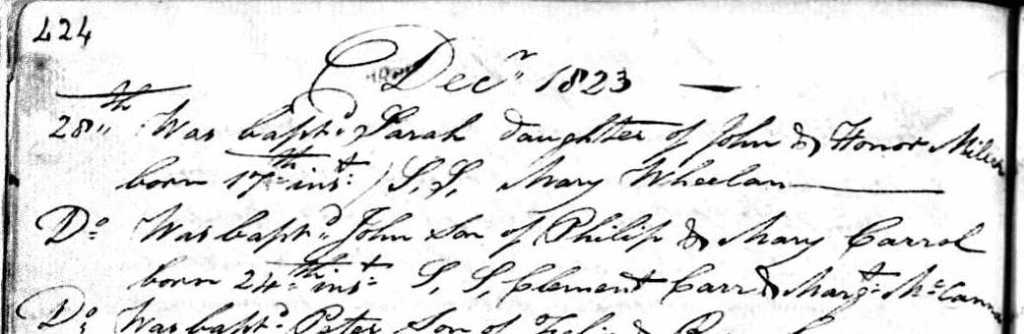 424
Decr 1823 —
28th Was bapt.d Sarah daughter of John & Honor
born 17th inst: / S. S. Mary Wheelan
Do Was bapt.d John Son of Philip & Mary Carrol
born 24th inst S. S Clement Carr & Margt McCann
Do Was bapt.d Peter Son of &